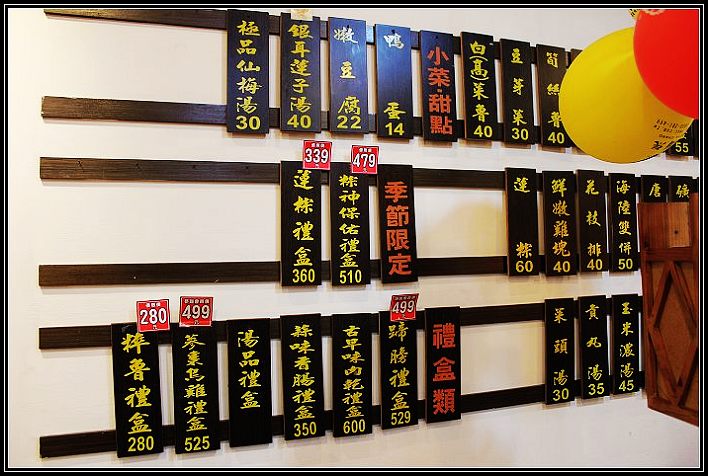 極品仙梅湯 30
銀耳蓮子湯 40
嫩豆腐 22
鴨蛋 14
小菜·甜點
白(高)菜魯 40
豆芽菜 30
筍絲魯 40
55
339
蓮粽禮盒 360
479
粽神保佑禮盒 510
季節限定
蓮粽 60
鮮嫩雞塊 40
花枝排 40
海陸雙併 50
唐
礦
280
粹魯禮盒 280
499
蔘棗烏雞禮盒 525
湯品禮盒
蒜味香腸禮盒 350
古早味肉乾禮盒 600
499
蹄膀禮盒 529
禮盒類
菜頭湯 30
貢丸湯 35
玉米濃湯 45